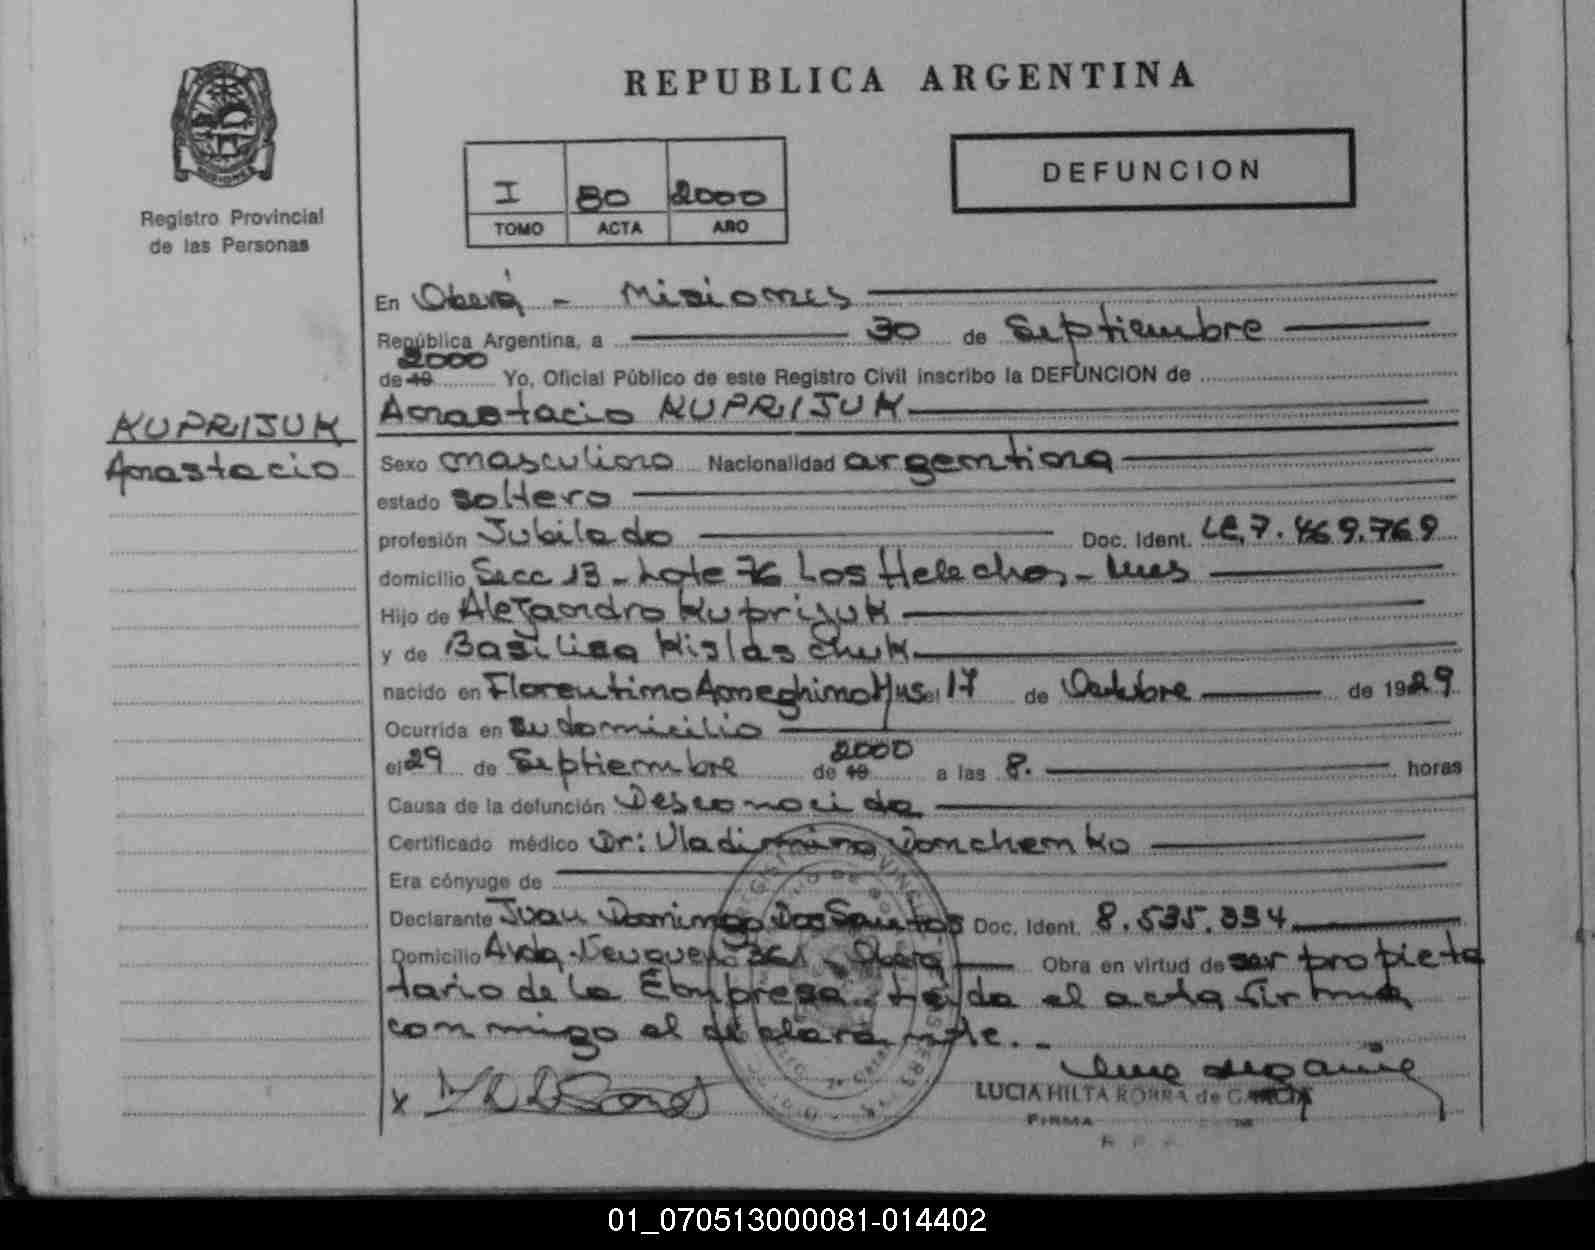 REPUBLICA ARGENTINA
DEFUNCION
I 80 2000
TOMO ACTA AÑO
MISIONES
Registro Provincial
de las Personas
KUPRIJUK
Anastacio
En Oberá - Misiones
República Argentina, a 30 de Septiembre
2000
de 19 Yo, Oficial Público de este Registro Civil inscribo la DEFUNCION de
Anastacio KUPRIJUK
Sexo masculino Nacionalidad argentina
estado soltero
profesión Jubilado Doc. Ident. LE.7.469.769
domicilio Secc 13 - Lote 76 Los Helechos - Mnes
Hijo de Alejandro Kuprijuk
y de Basilisa Kislaschuk
nacido en Florentino Ameghino Mns el 17 de Octubre de 1929
Ocurrida en su domicilio
2000
el 29 de Septiembre de 19 a las 8. horas
Causa de la defunción Desconocida
Certificado médico Dr: Vladimiro Domchemko
Era cónyuge de
Declarante Juan Domingo Dos Santos Doc. Ident. 8.535.334
Domicilio Avda. Neuquen 361 - Oberá Obra en virtud de ser propieta
tario de la Empresa. Leída el acta firma
conmigo el declarante. -
X
LUCIA HILTA RORRA de GARCIA
FIRMA
01_070513000081-014402